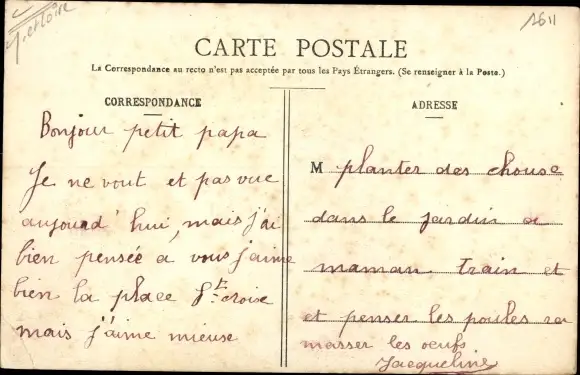 J. et Loire
1611
CARTE POSTALE
La Correspondance au recto n'est pas acceptée par tous les Pays Étrangers. (Se renseigner à la Poste.)
CORRESPONDANCE
Bonjour petit papa
Je ne vout et pas vue
aujourd'hui, mais j'ai
bien pensée a vous j'aime
bien la place Ste croise
mais j'aime mieuse
ADRESSE
M planter des chouse
dans le jardin a
maman train et
et penser les poules ra
masser les oeufs
Jacqueline